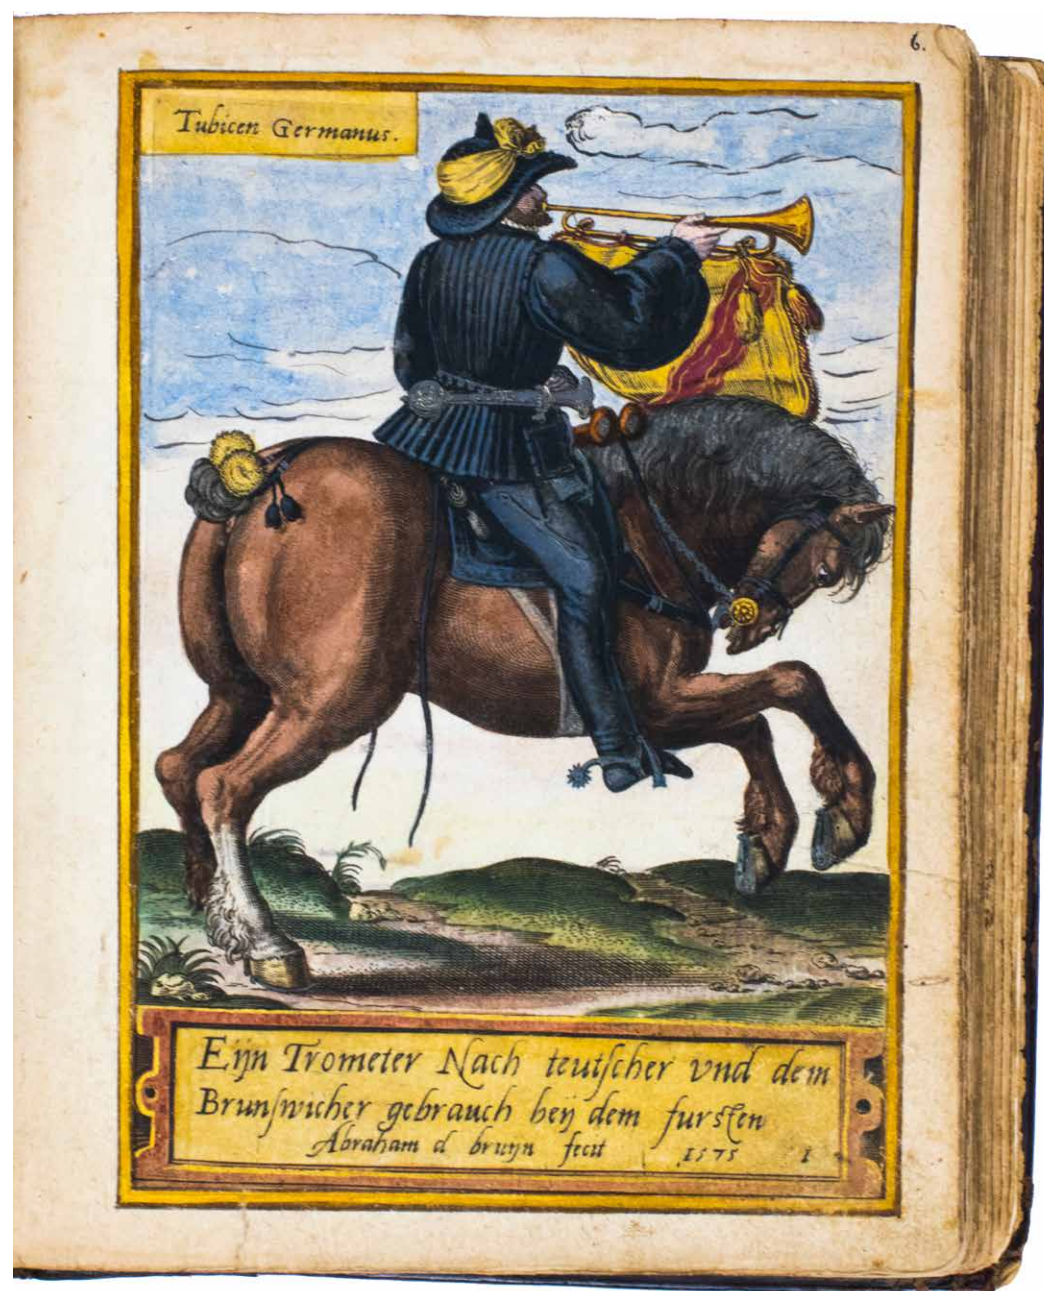 6.
Tubicen Germanus.
Eijn Trometer Nach teutſcher vnd dem
Brunſwicher gebrauch beij dem furſten
Abraham d bruijn fecit 1575 1